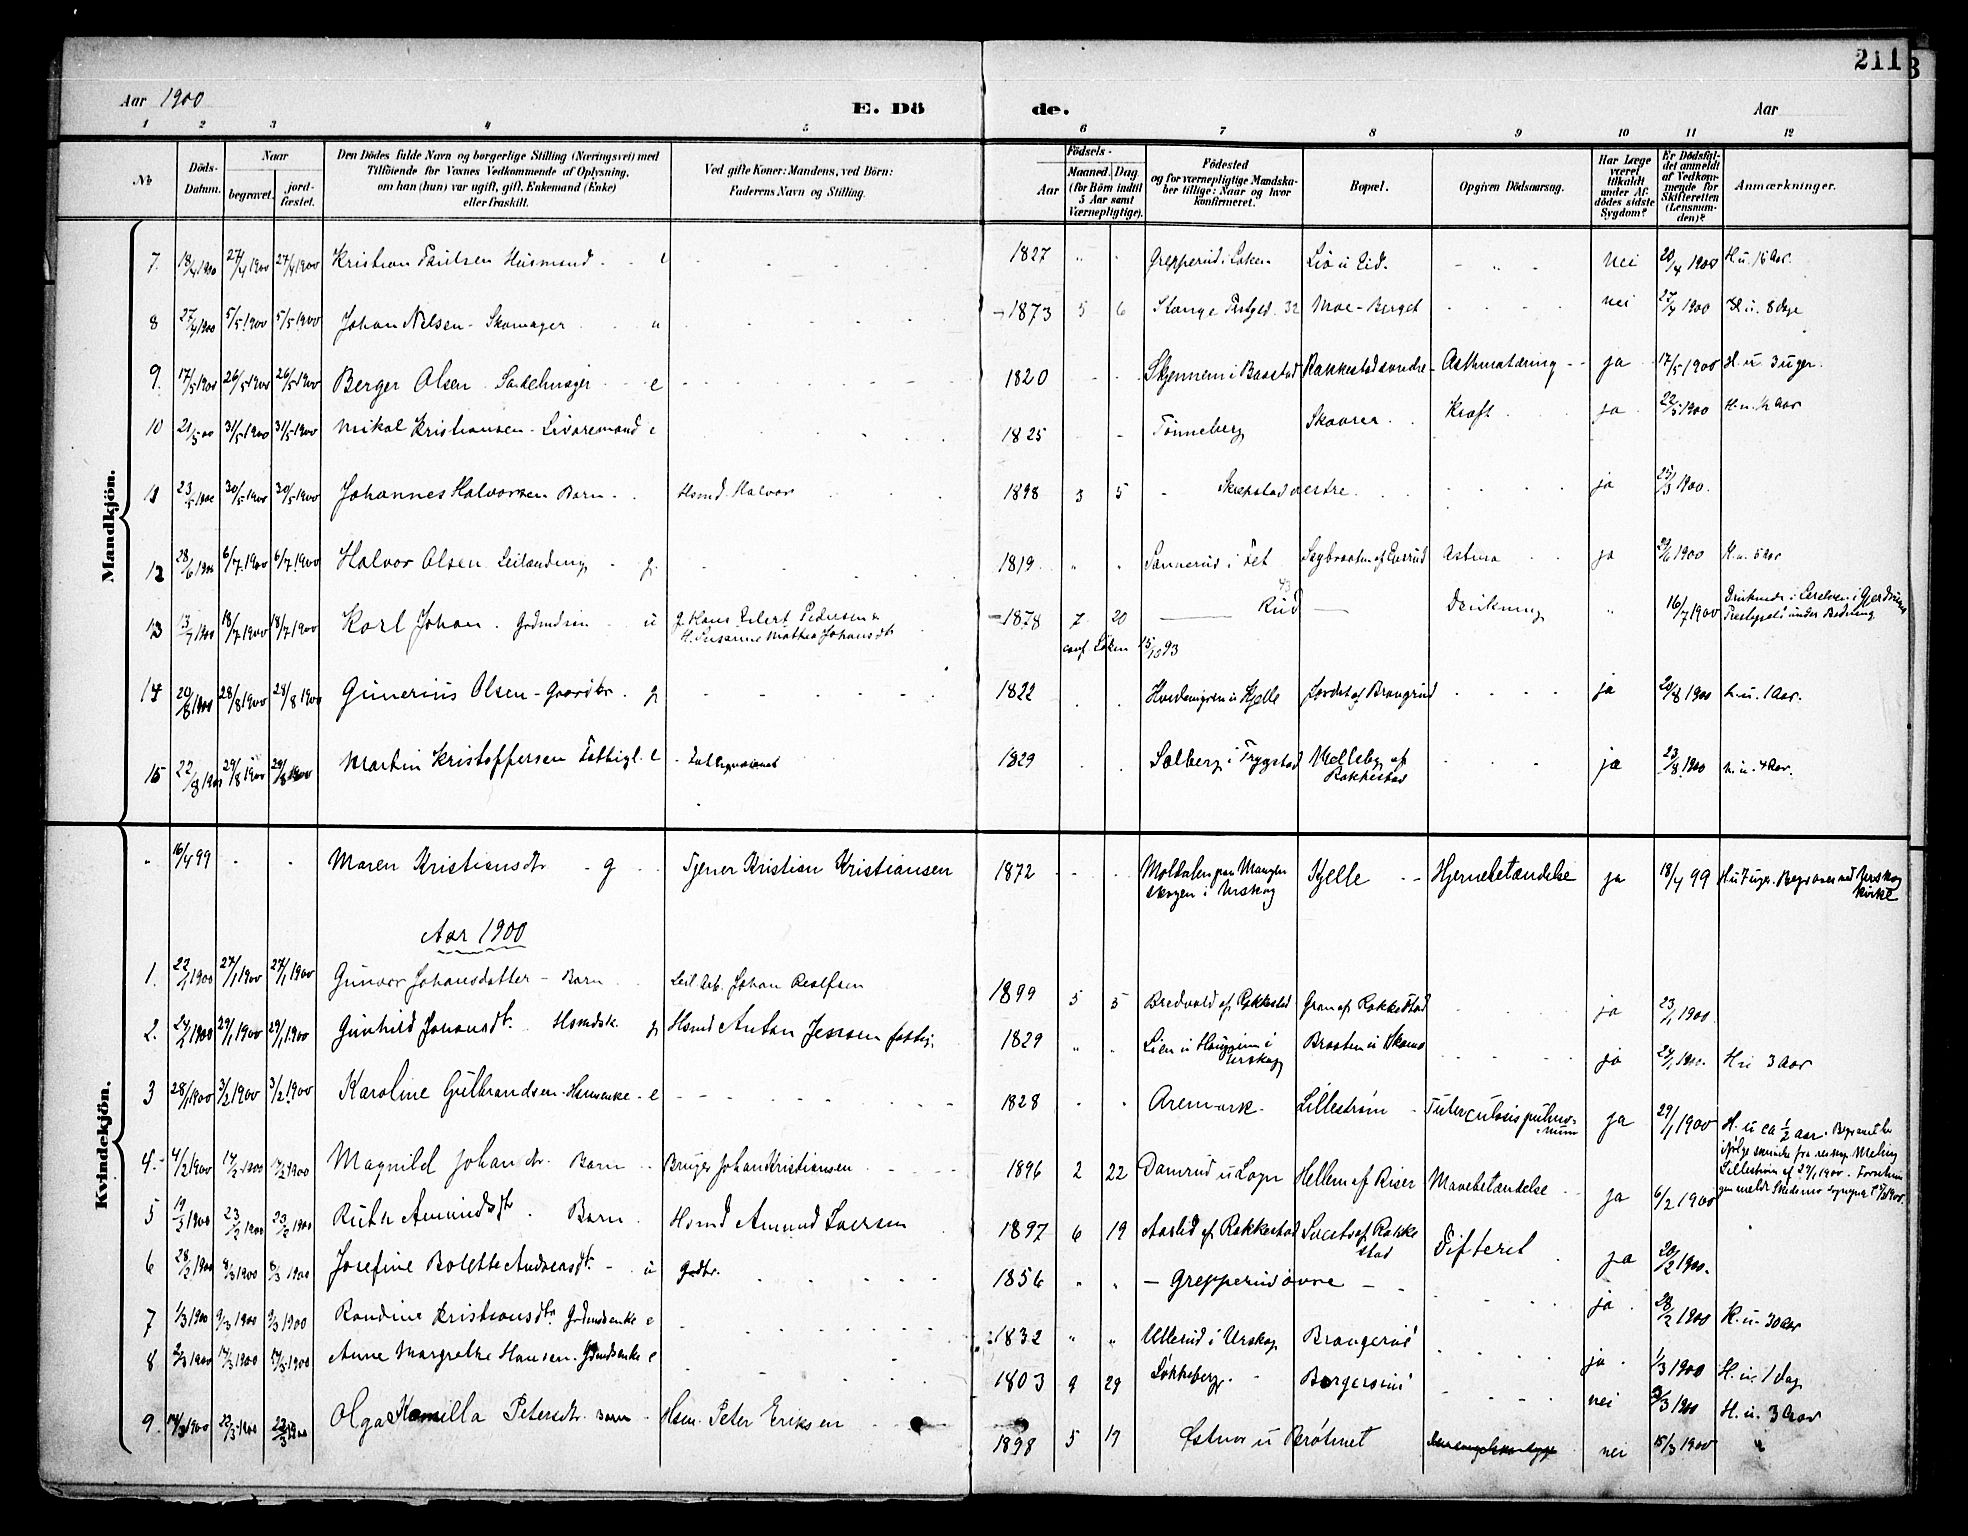 211
Aar 1900 E. Dö de. Aar
1 2 3 4 5 6 7 8 9 10 11 12
No.
Döds-Datum.
Naar
begravet.
jord-fæstet.
Den Dödes fulde Navn og borgerlige Stilling (Næringsvei) med
Tilföiende for Voxnes Vedkommende af Oplysning,
om han (hun) var ugift, gift, Enkemand (Enke)
eller fraskilt.
Ved gifte Koner: Mandens, ved Börn:
Faderens Navn og Stilling.
Födsels-
Aar
Maaned. Dag
(for Börn indtil
5 Aar samt
Værnepligtige).
Födested
og for værnepligtige Mandska-
ber tillige: Naar og hvor
konfirmeret.
Bopæl.
Opgiven Dödsaarsag.
Har Læge
været
tilkaldt
under Af-
dödes sidste
Sygdom?
Er Dödsfal-
det anmeldt
af Vedkom-
mende for
Skifteretten
(Lensman-
den)?
Anmærkninger.
Mandkjön.
7. 18/4 1900 27/4 1900 27/4 1900 Kristian Paulsen Husmand e 1827 Grepperud i Løken nei 20/4 1900 H. u. 15 Aar.
8 27/4 1900 5/5 1900 5/5 1900 Johan Nilsen - Skomager u 1873 5 6 Stange Moe - Berget nei 27/4 1900 H. u. 8 dge
9. 17/5 1900 26/5 1900 26/5 1900 Berger Olsen Sadelmager e 1820 Skjennem i Baastad Rakkestad søndre Asthmatæring ja 17/5 1900 H. u. 3 uger.
10 21/5 00 31/5 1900 31/5 1900 Mikal Kristiansen - Livøremand e 1825 Tønneberg Skaarer Kræft ja 22/5 1900 H. u. 1/2 Aar
11 23/5 1900 30/5 1900 30/5 1900 Johannes Halvorsen Barn Hsmd. Halvor 1898 3 5 Skrepstad vestre ja 25/5 1900.
12 28/6 1900 6/7 1900 6/7 1900 Halvor Olsen Leilænding g 1819 Sannerud i Fet Astma ja 29/6 1900 H. u. 5 Aar
13 13/7 1900 18/7 1900 18/7 1900 Karl Johan Grdmdsøn u G. Hans Eilert Pedersen &
H. Susanne Mathea Johansdtr 1878 7 20 Rud Drukning 16/7 1900 Druknede i Leraelven i Gjerdrum
Prestegjeld under Badning
conf. Løken 15/10 93
14 20/8 1900 28/8 1900 28/8 1900 Gunerius Olsen - Gaardbr. g 1822 i Kjelle Jordet af Brangerud ja 20/8 1900 H. u. 1 Aar.
15 22/8 1900 29/8 1900 29/8 1900 Martin Kristoffersen Fattigl. e 1829 Solberg i Trygstad Melleby af
Rakkestad ja 23/8 1900 H. u. 4 Aar.
Kvindekjön.
16/4 99 Maren Kristiansdtr g Tjener Kristian Kristiansen 1872 Moldalen paa Mangen
skogen i Urskog Kjelle Hjernebetændelse ja 18/4 99 H u 7 uger. Begraves ved Urskog
kirke
Aar 1900
1. 22/1 1900 27/1 1900 27/1 1900 Gunvor Johansdatter - Barn Johan Rolfsen 1899 5 5 Bredvold af Rakkestad Gran af Rakkestad ja 23/1 1900.
2. 24/1 1900 29/1 1900 29/1 1900 Gunhild Johansdtr. Hsmdsk. g Hsmd Anton Jensen fattig. 1829 Lien i
Urskog Braaten ja 24/1 1900. H. u. 3 Aar
3 28/1 1900 3/2 1900 3/2 1900 Karoline Gulbrandsen - Hsmenke - e 1828 Aremark. Lillestrøm - Tuberculosis pulmo-
num ja 29/1 1900 H. u ca 1/2 aar. Begravet her
Lillestrøm af 29/1 1900.
4. 4/2 1900 17/2 1900 17/2 1900 Magnild Johansdtr. Barn Bruger Johan Kristiansen 1896 2 22 Damrud Hellem af Riser Mavebetændelse ja 6/2 1900
5 19/2 1900 23/2 1900 23/2 1900 Ruth Amundsdtr. Barn Hsmd Amund Larsen 1897 6 19 Aaslid af Rakkestad af Rakke
stad Difterit ja 20/2 1900.
6 28/2 1900 8/3 1900 8/3 1900 Josefine Bolette Andreasdtr. u Grdbr. 1856 - Grepperud øvre - ja 28/2 1900 H. u. 30 Aar
7 1/3 1900 9/3 1900 9/3 1900 Randine Kristiansdtr. Grdmdsenke e 1832 Ullerud i Urskog Brangerud ja 1/3 1900 H. u. 1 dag
8 2/3 1900 17/3 1900 17/3 1900 Anne Margrethe Hansen. Grdmdsenke e 1803 9 29 Løkkeberg Borgersrud nei 3/3 1900 H. u. 3 Aar
9. 14/3 1900 22/3 1900 22/3 1900 Olga Kamilla Petersdtr. Barn Hsm. Peter Eriksen 1898 5 19 Østnor u Brøtmet nei 15/3 1900